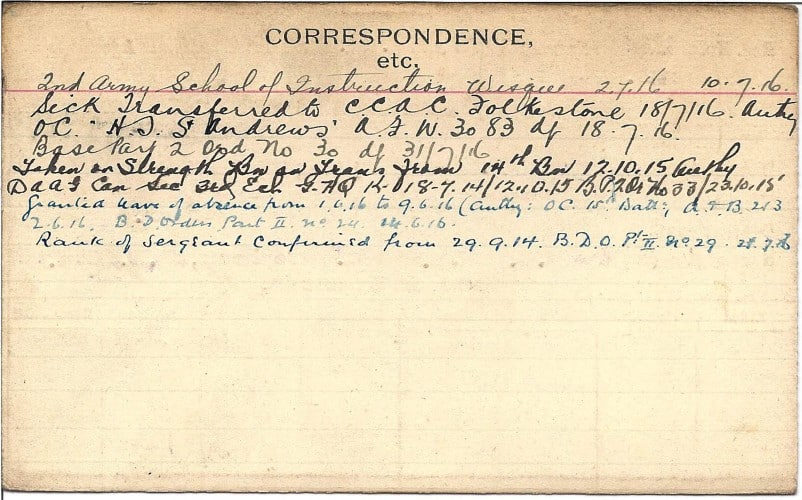 CORRESPONDENCE,
etc.
2nd Army School of Instruction Wisques 2.7.16 10.7.16.
Sick Transferred to C.C.A.C. Folkestone 18/7/16. Authy
O.C. "H.S. St Andrews" A.F.W. 3083 df 18.7.16.
Base Part 2 Ord No 30 df 31/7/16
Taken on Strength Bn on Trans from 14th Bn 12.10.15 Authy
DAAG Can Sec 3rd Ech G.H.Q. K- 18-7.14/12.10.15 B.P.2 Or No 33/23.10.15
Granted leave of absence from 1.6.16 to 9.6.16 (Authy: O.C. 15th Battn, A.F.B. 213
2.6.16. B.D. Orders Part II. No 24. 14.6.16.
Rank of Sergeant Confirmed from 29.9.14. B.D.O. Pt II. No 29. 21.7.16